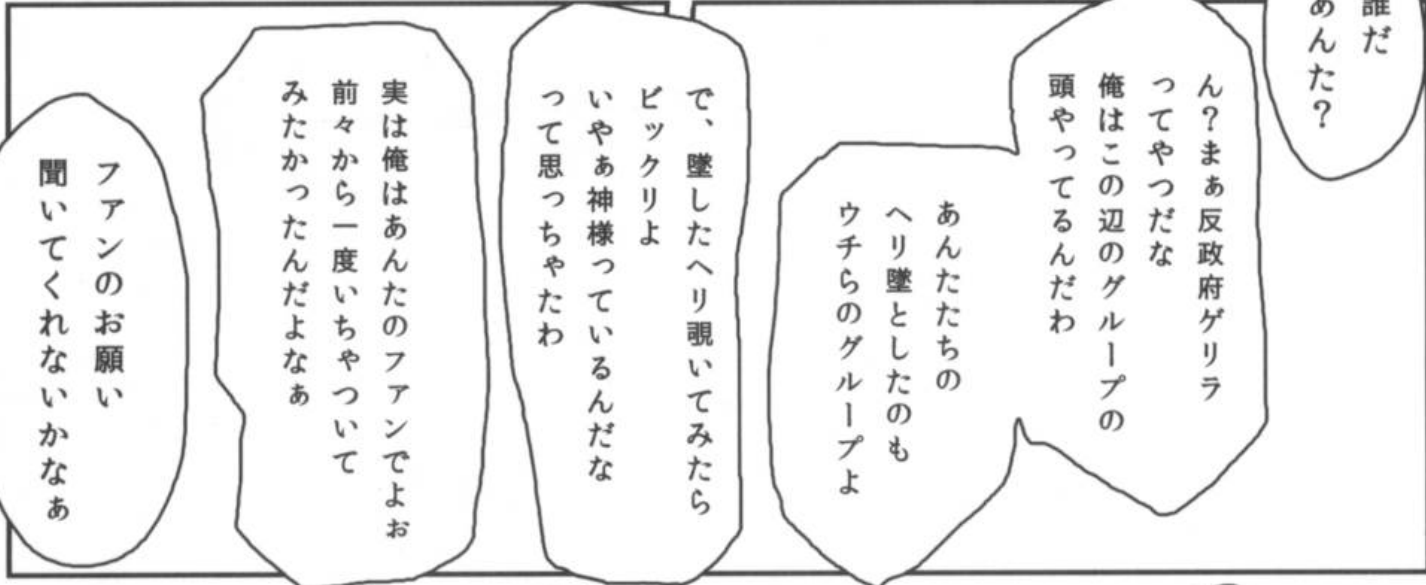 誰だ
あんた？
ん？まぁ反政府ゲリラ
ってやつだな
俺はこの辺のグループの
頭やってるんだわ
あんたたちの
ヘリ墜としたのも
ウチらのグループよ
で、墜したヘリ覗いてみたら
ビックリよ
いやぁ神様っているんだな
って思っちゃたわ
実は俺はあんたのファンでよぉ
前々から一度いちゃついて
みたかったんだよなぁ
ファンのお願い
聞いてくれないかなぁ